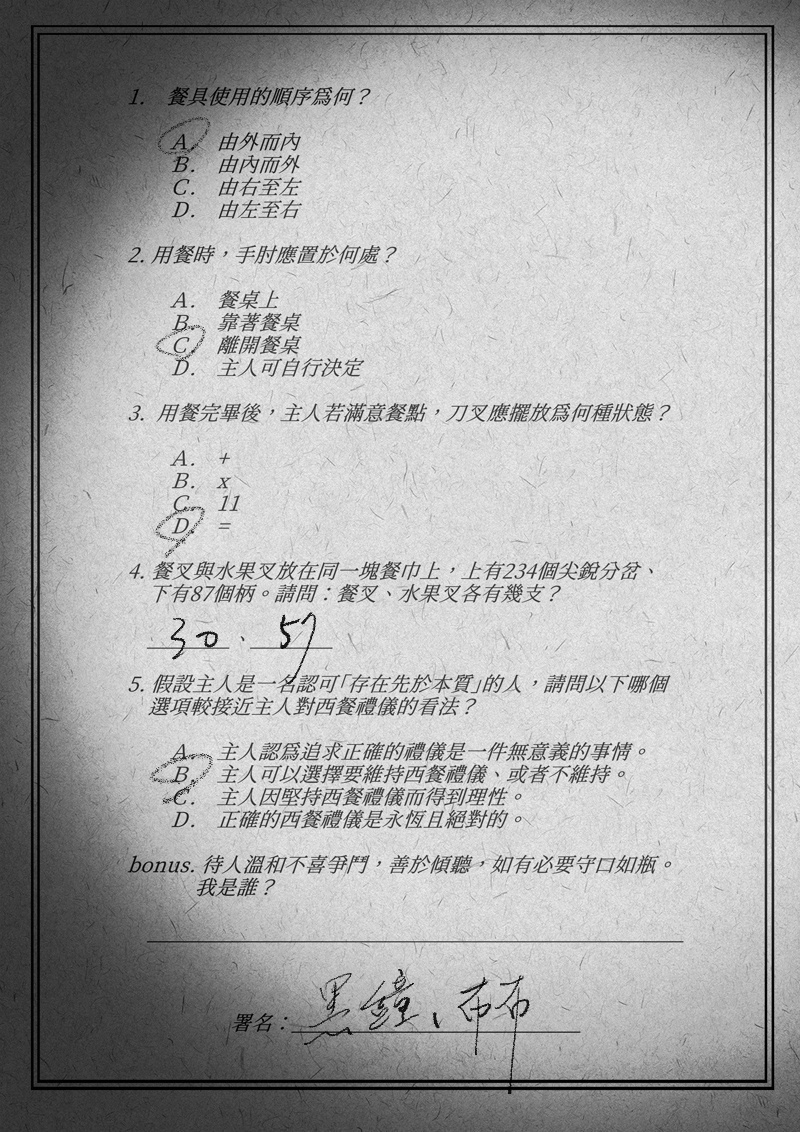 1. 餐具使用的順序爲何？
A. 由外而內
B. 由內而外
C. 由右至左
D. 由左至右
2. 用餐時，手肘應置於何處？
A. 餐桌上
B. 靠著餐桌
C. 離開餐桌
D. 主人可自行決定
3. 用餐完畢後，主人若滿意餐點，刀叉應擺放爲何種狀態？
A. +
B. x
C. 11
D. =
4. 餐叉與水果叉放在同一塊餐巾上，上有234個尖銳分岔、
下有87個柄。請問：餐叉、水果叉各有幾支？
30、57
5. 假設主人是一名認可「存在先於本質」的人，請問以下哪個
選項較接近主人對西餐禮儀的看法？
A. 主人認爲追求正確的禮儀是一件無意義的事情。
B. 主人可以選擇要維持西餐禮儀、或者不維持。
C. 主人因堅持西餐禮儀而得到理性。
D. 正確的西餐禮儀是永恆且絕對的。
bonus. 待人溫和不喜爭鬥，善於傾聽，如有必要守口如瓶。
我是誰？
署名：黑鐘、布布